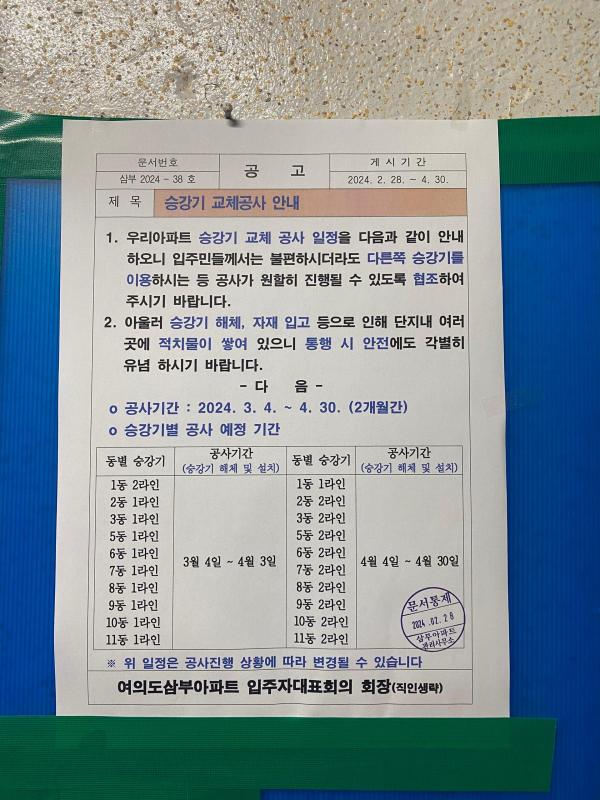 문서번호
공 고
게 시 기 간
삼부 2024 - 38 호
2024. 2. 28. ~ 4. 30.
제 목
승강기 교체공사 안내
1. 우리아파트 승강기 교체 공사 일정을 다음과 같이 안내
하오니 입주민들께서는 불편하시더라도 다른쪽 승강기를
이용하시는 등 공사가 원할히 진행될 수 있도록 협조하여
주시기 바랍니다.
2. 아울러 승강기 해체, 자재 입고 등으로 인해 단지내 여러
곳에 적치물이 쌓여 있으니 통행 시 안전에도 각별히
유념 하시기 바랍니다.
- 다 음 -
o 공사기간 : 2024. 3. 4. ~ 4. 30. (2개월간)
o 승강기별 공사 예정 기간
동별 승강기
공사기간
(승강기 해체 및 설치)
동별 승강기
공사기간
(승강기 해체 및 설치)
1동 2라인
2동 1라인
3동 1라인
5동 1라인
6동 1라인
7동 1라인
8동 1라인
9동 1라인
10동 1라인
11동 1라인
3월 4일 ~ 4월 3일
1동 1라인
2동 2라인
3동 2라인
5동 2라인
6동 2라인
7동 2라인
8동 2라인
9동 2라인
10동 2라인
11동 2라인
4월 4일 ~ 4월 30일
문서통제
2024. 02. 28
삼부아파트
관리사무소
※ 위 일정은 공사진행 상황에 따라 변경될 수 있습니다
여의도삼부아파트 입주자대표회의 회장(직인생략)